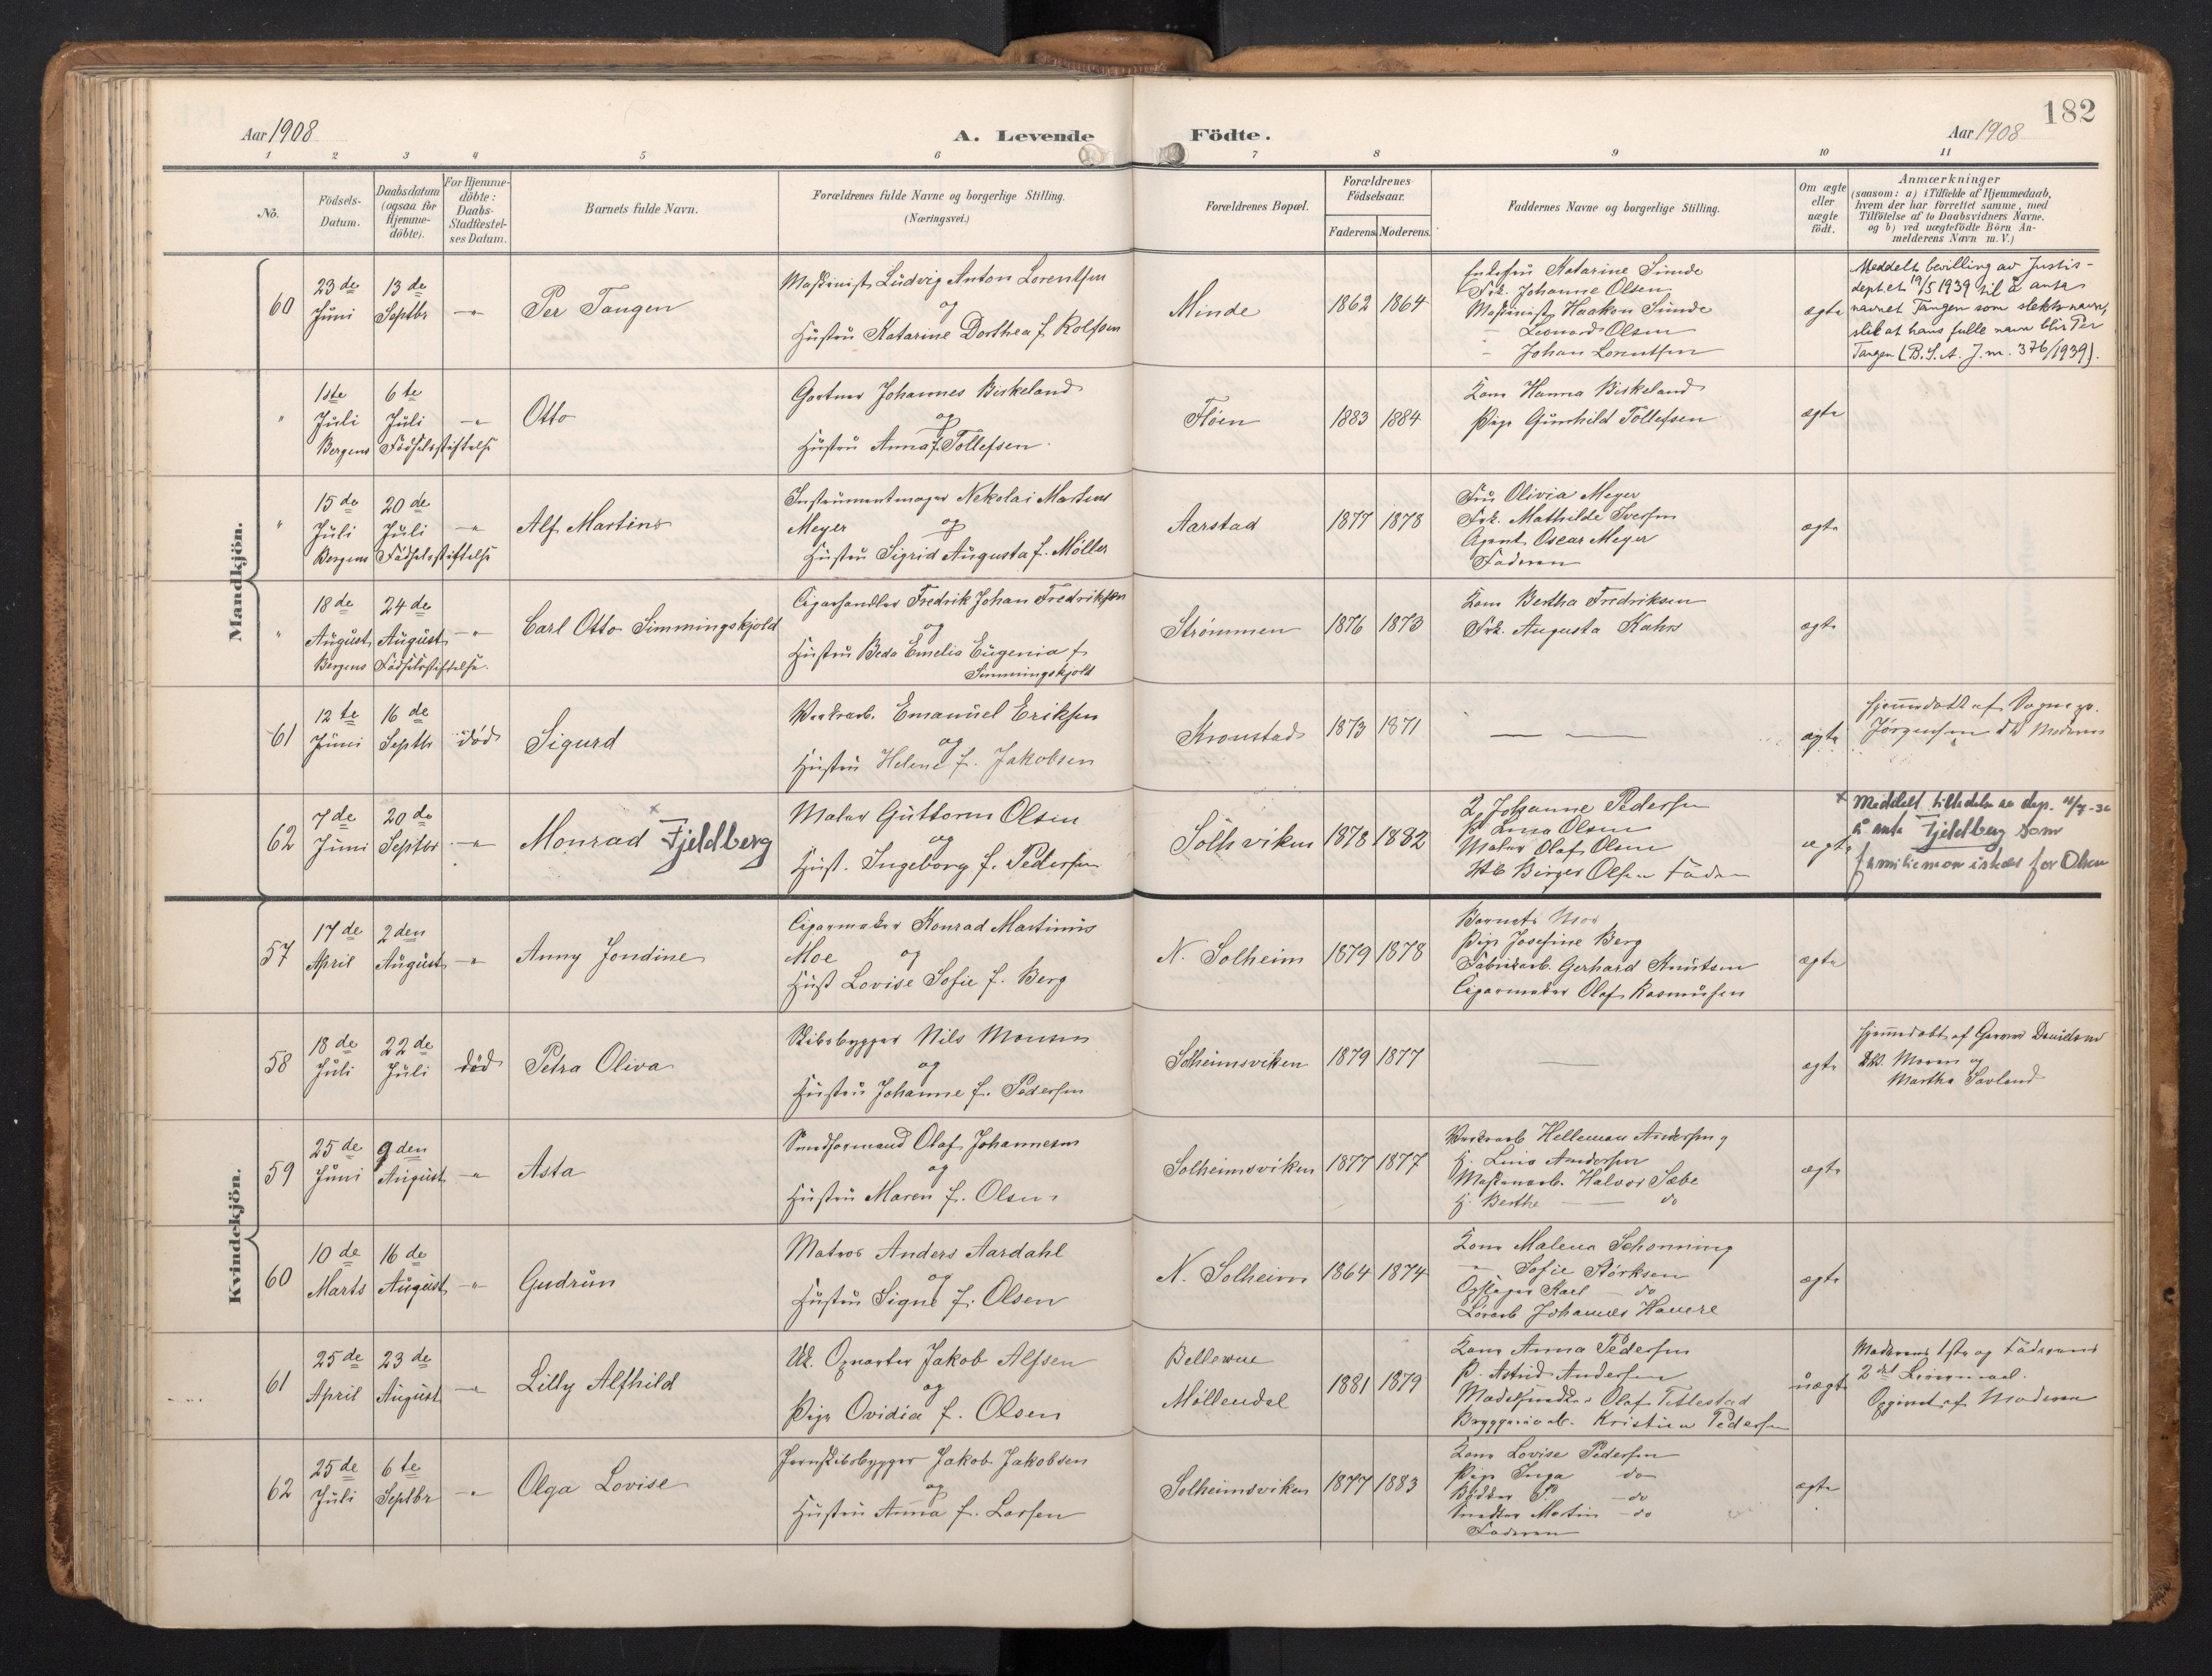 182
Aar 1908
A. Levende Födte.
Aar 1908
1 2 3 4 5 6 7 8 9 10 11
No.
Födsels-Datum.
Daabsdatum (ogsaa for Hjemme-döbte).
For Hjemme-döbte: Daabs-Stadfæstel-ses Datum.
Barnets fulde Navn.
Forældrenes fulde Navne og borgerlige Stilling.
(Næringsvei.)
Forældrenes Bopæl.
Forældrenes Födselsaar.
Faderens Moderens.
Faddernes Navne og borgerlige Stilling.
Om ægte eller uægte födt.
Anmærkninger
(saasom: a) i Tilfælde af Hjemmedaab,
hvem der har forrettet samme, med
Tilföielse af to Daabsvidners Navne,
og b) ved uægtefödte Börn An-
melderens Navn m. V.)
Mandkjön.
60
23de Juni
13de Septbr
Per Tangen
Maskinist Ludvig Anton Lorentsen
og
Hustru Katarine Dorthea f. Rolfsen
Minde
1862 1864
Enkefru Katarine Sunde
Frk. Johanne Olsen
Maskinist Haakon Sunde
" Leonard Olsen
" Johan Lorentsen
ægte
Meddelt bevilling av Justis-
dept et 19/5 1939 til å anta
navnet Tangen som slektsnavn,
slik at hans fulle navn blir Per
Tangen (B.S.A. J.nr. 376/1939).
"
1ste Juli
6te Juli
Bergens Födselsstiftelse
Otto
Gartner Johannes Birkeland
og
Hustru Anna f. Tollefsen
Fløen
1883 1884
Kone Hanna Birkeland
Pige Gunhild Tollefsen
ægte
"
15de Juli
20de Juli
Bergens Födselsstiftelse
Alf Martins
Instrumentmager Nekolai Martens
Meyer og
Hustru Sigrid Augusta f. Møller
Aarstad
1877 1878
Fru Olivia Meyer
Frk. Mathilde Iversen
Agent Oscar Meyer
Faderen
ægte
"
18de August
24de August
Bergens Födselsstiftelse.
Carl Otto Simmingskjold
Cigarhandler Fredrik Johan Fredriksen
og
Hustru Beda Emelia Eugenia f.
Simmingskjold
Strømmen
1876 1873
Kone Bertha Fredriksen
Frk. Augusta Kahrs
ægte
61
12te Juni
16de Septbr
död
Sigurd
Værksarb. Emanuel Eriksen
og
Hustru Helene f. Jakobsen
Kronstad
1873 1871
ægte
Hjemmedøbt af
Jørgensen
62
7de Juni
20de Septbr
Monrad x Fjeldberg
Maler Guttorm Olsen
og
Hust. Ingeborg f. Pedersen
Solhviken
1878 1882
K. Johanne Pedersen
P. Lina Olsen
Maler Olaf Olsen
Birger Olsen Faderen
ægte
x Meddelt tilladelse av dep.
å anta Fjeldberg som
familienavn istedet for Olsen
Kvindekjön.
57
17de April
2den August
Anny Jondine
Cigarmaker Konrad Martinus
Moe og
Hust Lovise Sofie f. Berg
N. Solheim
1879 1878
Barnets Mor
Pige Josefine Berg
Fabrikarb. Gerhard Knutsen
Cigarmaker Olaf Rasmusen
ægte
58
18de Juli
22de Juli
död
Petra Oliva
Skibsbygger Nils Monsen
og
Hustru Johanne f. Pedersen
Solheimsviken
1879 1877
ægte
Hjemmedøbt af Davidsen
Moren og
Martha
59
25de Juni
9den August
Asta
Olaf Johannesen
og
Hustru Maren f. Olsen
Solheimsviken
1877 1877
Værksarb Helleman Andersen og
H. Lina Andersen
Maskinarb. Halvor Sæbe
H. Berthe do
ægte
60
10de Marts
16de August
Gudrun
Matros Anders Aardahl
og
Hustru Signe f. Olsen
N. Solheim
1864 1874
Kone Malena Schonning
" Sofie Störksen
Karl do
Johannes
ægte
61
25de April
23de August
Lilly Alfhild
Uk. Opvarter Jakob Alfsen
og
Pige Ovidia f. Olsen
Bellevue
Möllendal
1881 1879
Kone Anna Pedersen
P. Astrid Andersen
Modelsnedker Olaf Titlestad
Bryggeriarb. Kristian Pedersen
uægte
Moderens 1ste og Faderens
2det Leiermaal.
Opgivet af Moderen
62
25de Juli
6te Septbr
Olga Lovise
Jernskibsbygger Jakob Jakobsen
og
Hustru Anna f. Larsen
Solheimsviken
1877 1883
Kone Lovise Pedersen
Pige Inga do
Bödker P. do
Snedker Martin do
Faderen
ægte